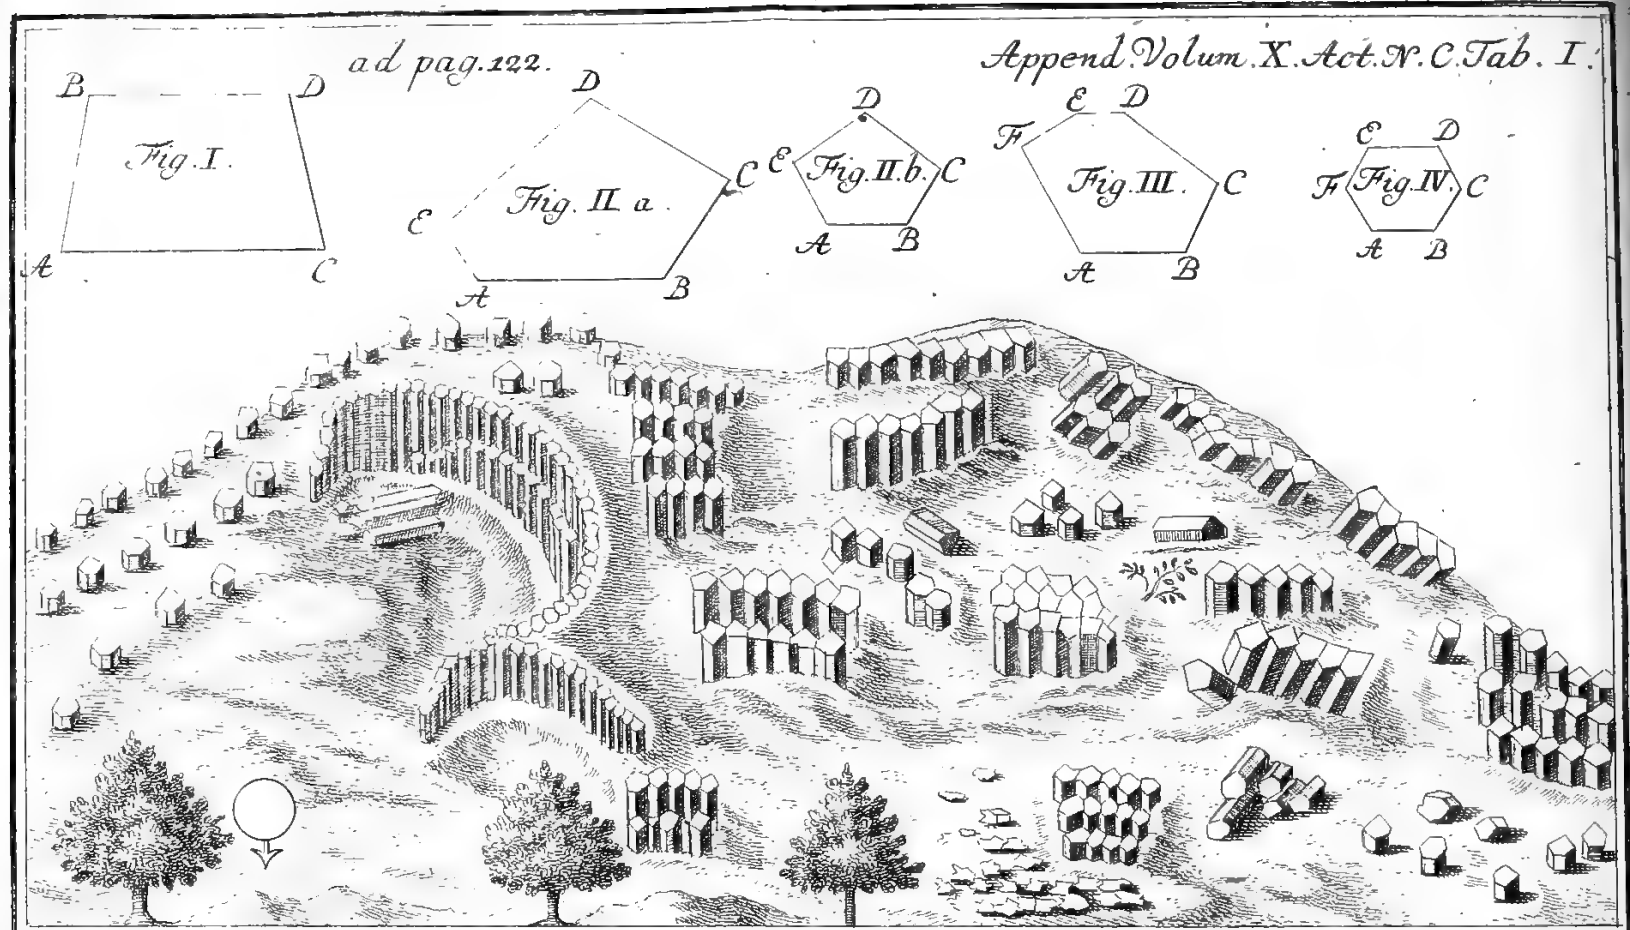 ad pag. 122.
Append. Volum. X. Act. N. C. Tab. I.
B D
Fig. I.
A C
D
C
E
Fig. II a.
A B
D
E C
Fig. II. b.
A B
E D
F
Fig. III.
C
A B
E D
F Fig. IV. C
A B